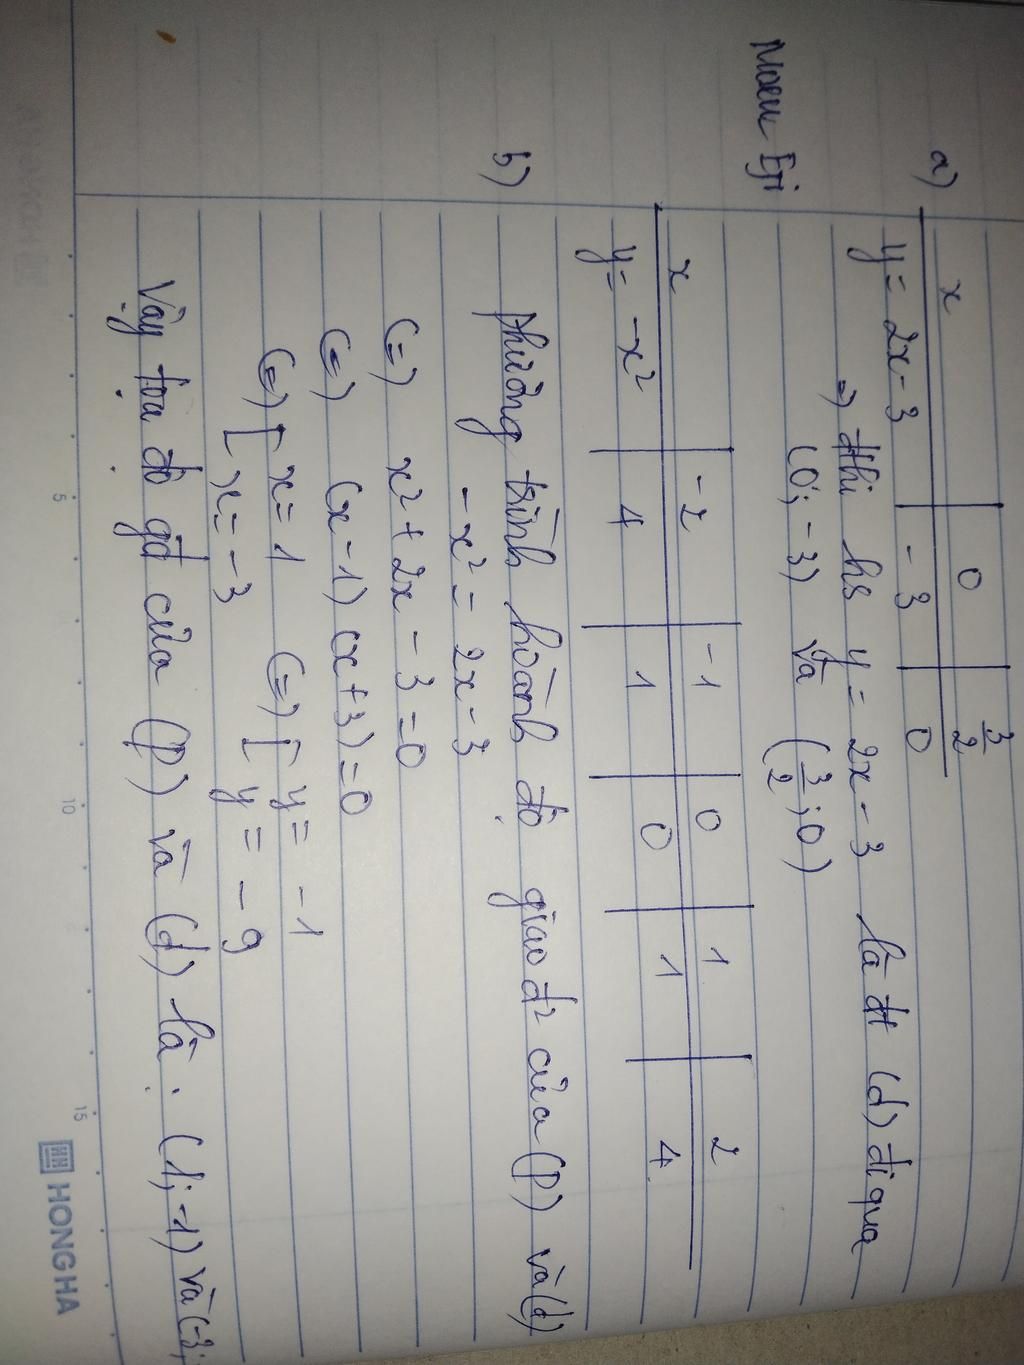 a) x 0 3/2
y = 2x - 3 - 3 0
=) đthị hs y = 2x - 3 là đt (d) đi qua
(0; -3) và (3/2; 0)
x -2 -1 0 1 2
y = -x² 4 1 0 1 4
b) phương trình hoành độ giao đ² của (P) và (d)
-x² = 2x - 3
(=) x² + 2x - 3 = 0
(=) (x - 1) (x + 3) = 0
(=) [ x = 1 (=) [ y = -1
x = -3 y = -9
Vậy toạ độ gđ của (P) và (d) là: (1; -1) và (-3;
5 10 15
HONG HA